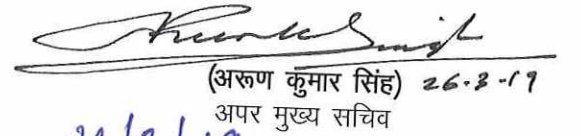 (अरूण कुमार सिंह) 26.3.19
अपर मुख्य सचिव